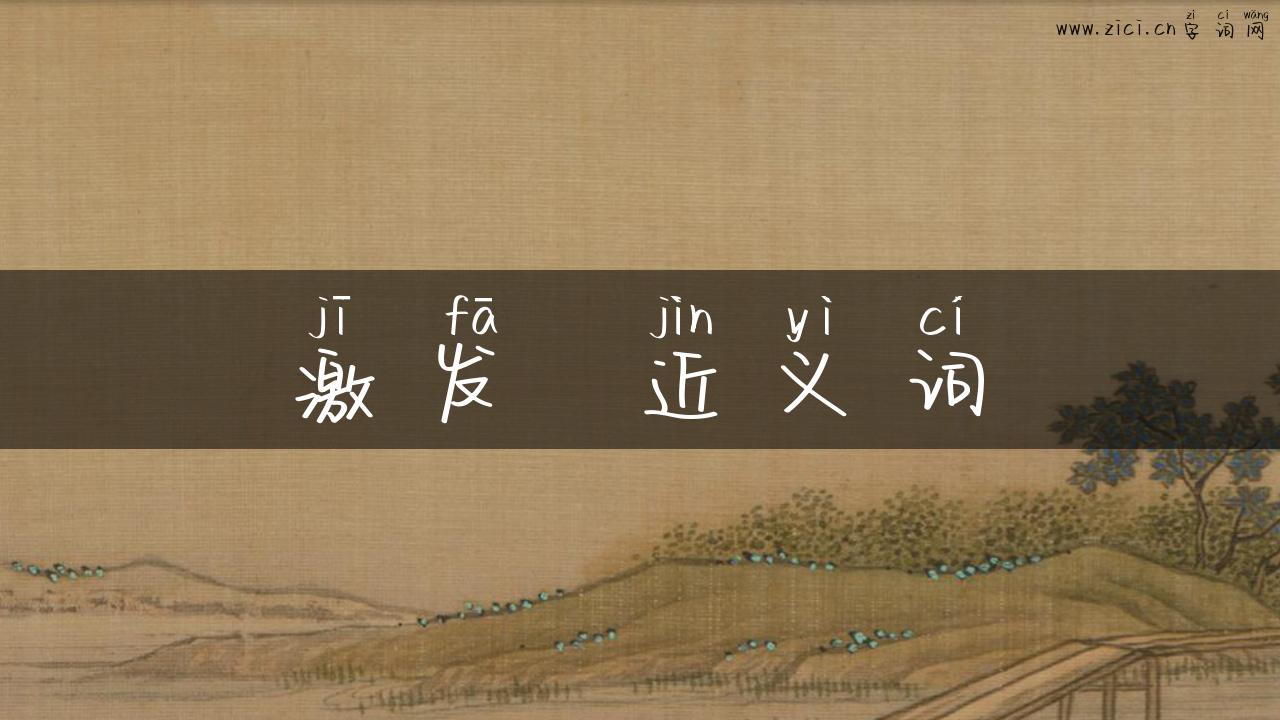 zì cí wǎng
www.zici.cn字词网
jī fā jìn yì cí
激发 近义词